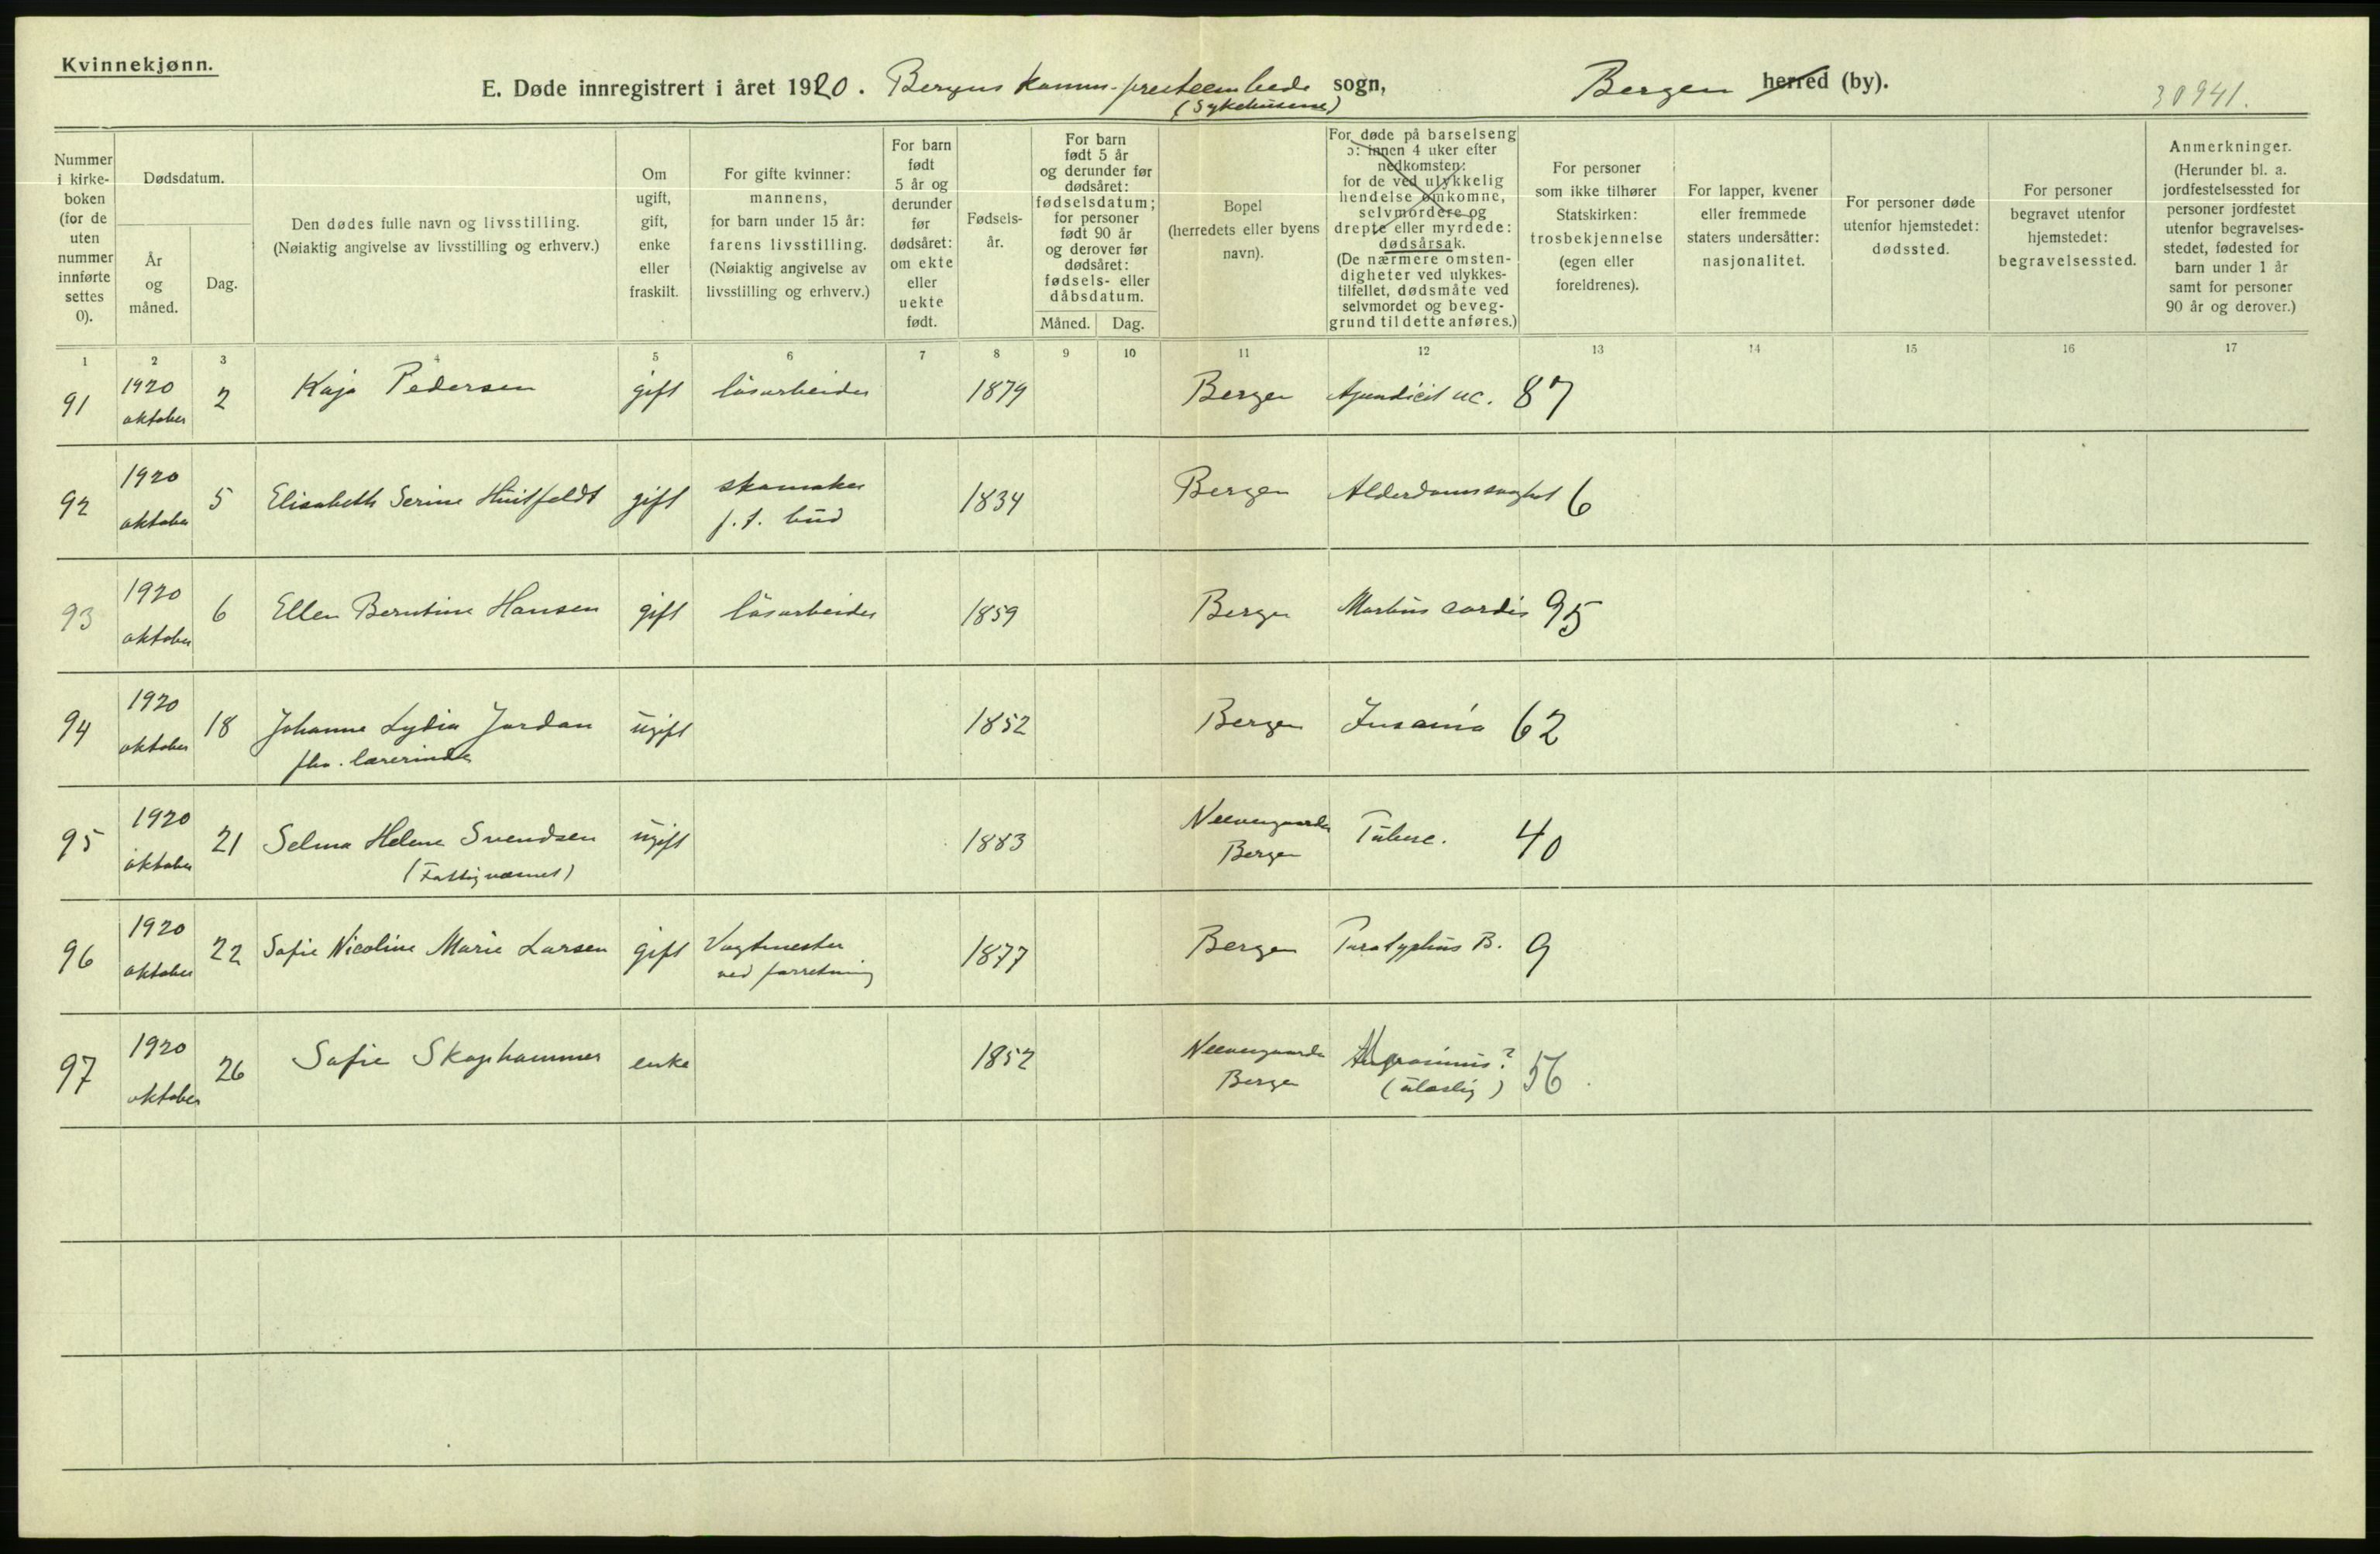 Kvinnekjønn.
E. Døde innregistrert i året 1920. Bergens komm. presteembede sogn, Bergen herred (by).
(Sykehusene)
30941.
Nummer i kirkeboken (for de uten nummer innførte settes 0).
Dødsdatum.
År og måned.
Dag.
Den dødes fulle navn og livsstilling.
(Nøiaktig angivelse av livsstilling og erhverv.)
Om ugift, gift, enke eller fraskilt.
For gifte kvinner: mannens, for barn under 15 år: farens livsstilling. (Nøiaktig angivelse av livsstilling og erhverv.)
For barn født 5 år og derunder før dødsåret: om ekte eller uekte født.
Fødselsår.
For barn født 5 år og derunder før dødsåret: fødselsdatum; for personer født 90 år og derover før dødsåret: fødsels- eller dåbsdatum.
Måned. Dag.
Bopel (herredets eller byens navn).
For døde på barselseng ɔ: innen 4 uker efter nedkomsten: for de ved ulykkelig hendelse omkomne, selvmordere og drepte eller myrdede: dødsårsak. (De nærmere omstendigheter ved ulykkestilfellet, dødsmåte ved selvmordet og beveggrund til dette anføres.)
For personer som ikke tilhører Statskirken: trosbekjennelse (egen eller foreldrenes).
For lapper, kvener eller fremmede staters undersåtter: nasjonalitet.
For personer døde utenfor hjemstedet: dødssted.
For personer begravet utenfor hjemstedet: begravelsessted.
Anmerkninger. (Herunder bl. a. jordfestelsessted for personer jordfestet utenfor begravelsesstedet, fødested for barn under 1 år samt for personer 90 år og derover.)
1 2 3 4 5 6 7 8 9 10 11 12 13 14 15 16 17
91 1920 oktober 2 Kaja Pedersen gift løsarbeider 1879 Bergen 87
92 1920 oktober 5 Elisabeth Serine Huitfeldt gift skomaker f. t. bud 1834 Bergen Alderdomssvaghet 6
93 1920 oktober 6 Ellen Berntine Hansen gift løsarbeider 1859 Bergen Morbus cordis 95
94 1920 oktober 18 Johanne Lydia Jordan fhv. lærerinde ugift 1852 Bergen Insania 62
95 1920 oktober 21 Selma Helene Svendsen (Fattigvæsnet) ugift 1883 Neevengaarden Bergen Tuberc. 40
96 1920 oktober 22 Sofie Nicoline Marie Larsen gift Vagtmester ved forretning 1877 Bergen Paratyphus B. 9
97 1920 oktober 26 Sofie Skaphammer enke 1852 Neevengaarden Bergen (ulæslig) 56